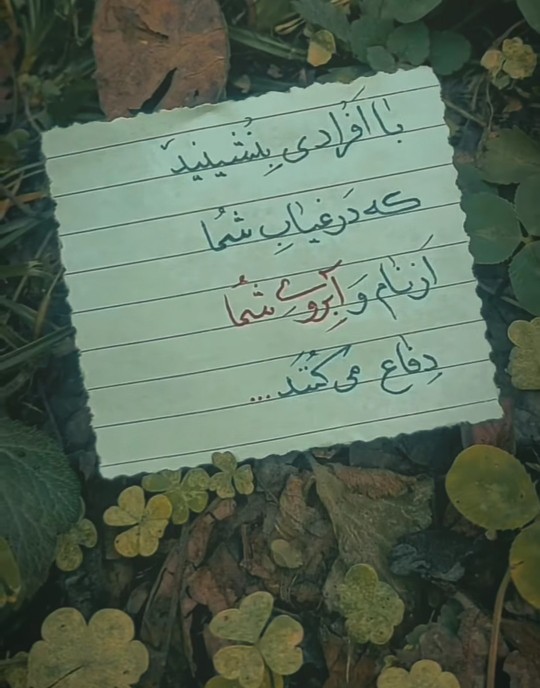 با اَفرادی بِنْشینید
که دَر غیابِ شُما
اَز نام وَ آبِرویِ شُما
دِفاع می کُنَند...